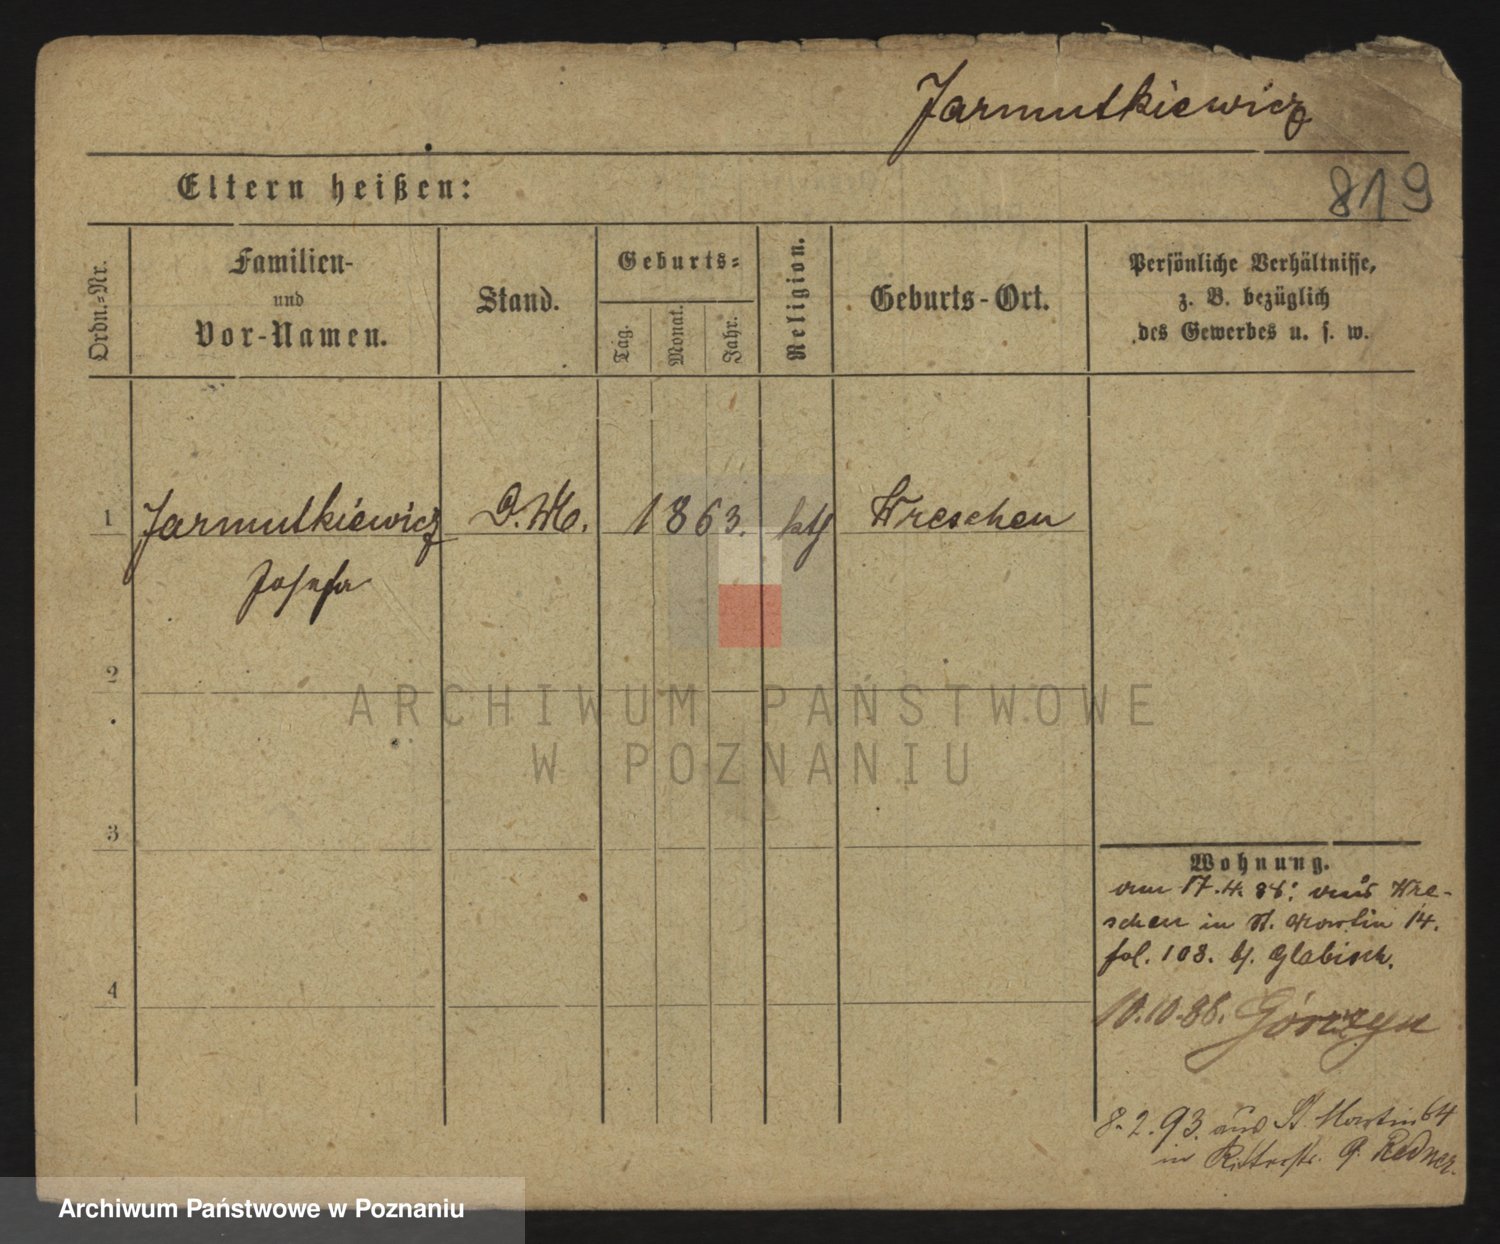 Jarmutkiewicz
819
Eltern heißen:
Ordn.-Nr.
Familien-
und
Vor-Namen.
Stand.
Geburts-
Tag.
Monat.
Jahr.
Religion.
Geburts-Ort.
Persönliche Verhältnisse,
z. B. bezüglich
des Gewerbes u. s. w.
1
Jarmutkiewicz
Josefa
D. M.
1863.
kth
Wreschen
2
ARCHIWUM PAŃSTWOWE
W POZNANIU
3
4
Wohnung.
am 17.4. 88: aus Wre-
schen in St. Martin 14.
fol. 108. b/. Glabisch.
10.10.88. Górczyn
8.2.93. aus St. Martin 64
in Ritterstr. 9. Redner.
Archiwum Państwowe w Poznaniu